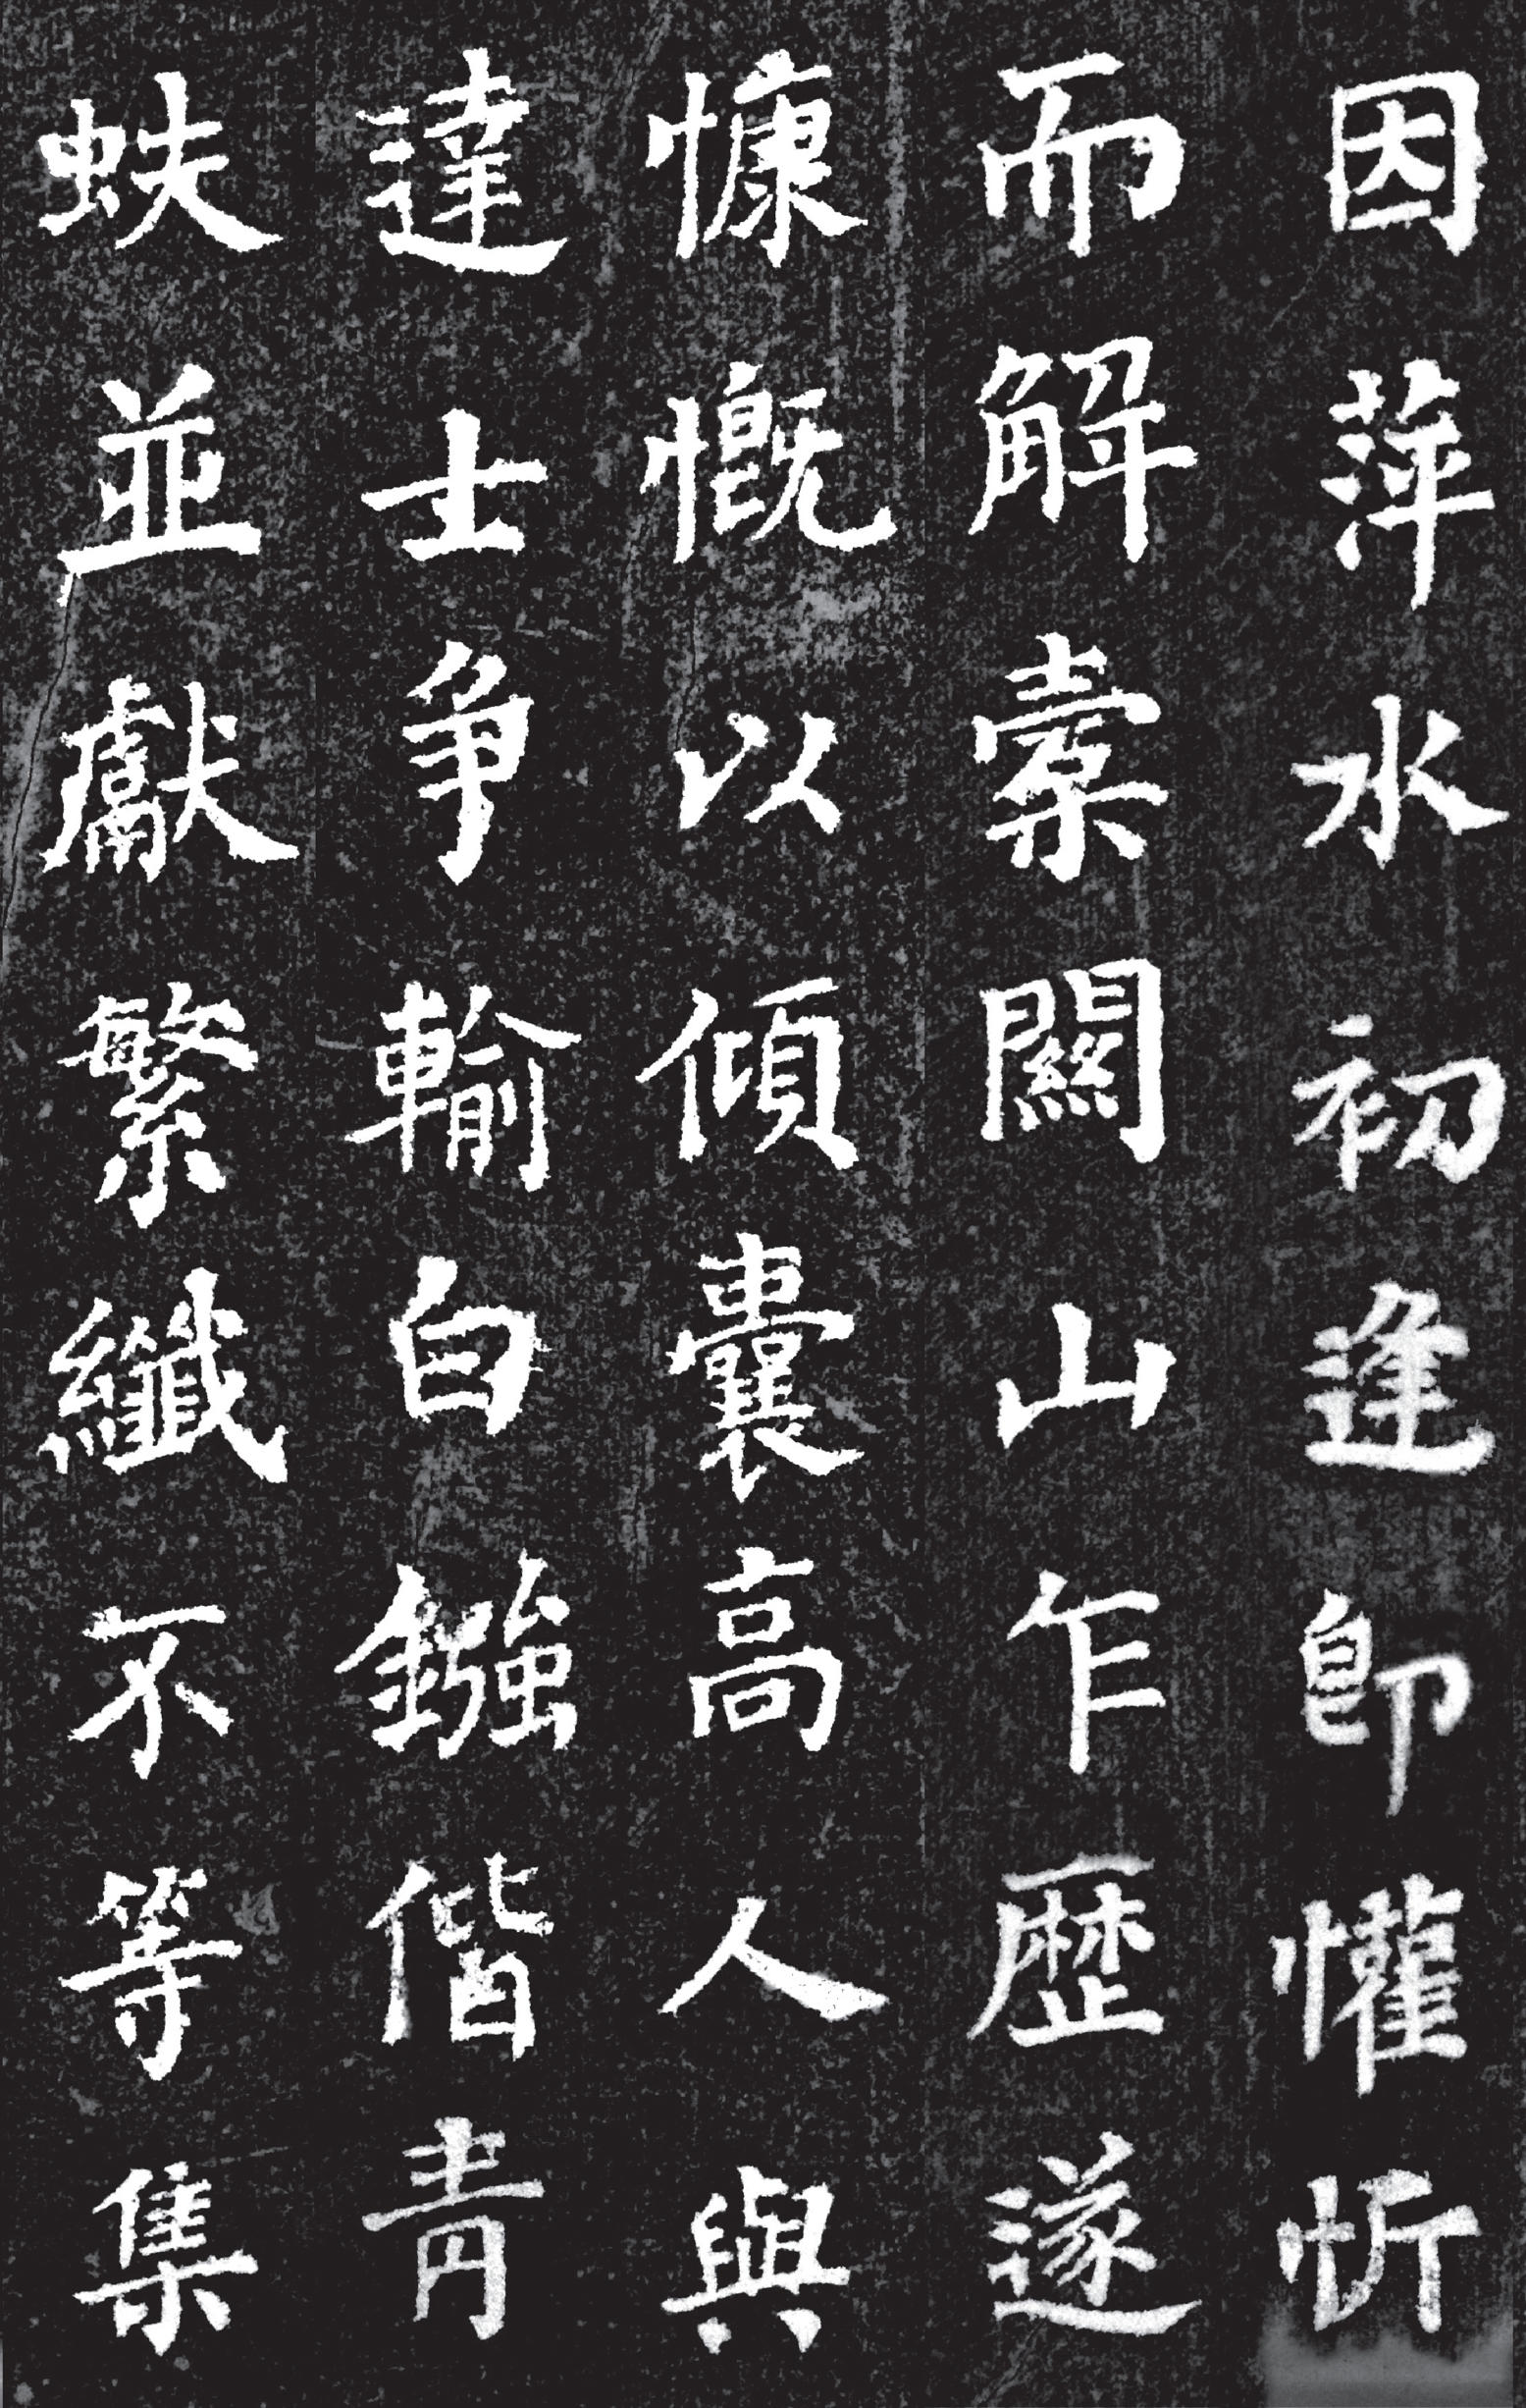 因萍水初逢即懽忻
而解橐關山乍歷遂
慷慨以傾囊高人與
達士爭輸白鏹偕青
蚨並獻繁纖不等集